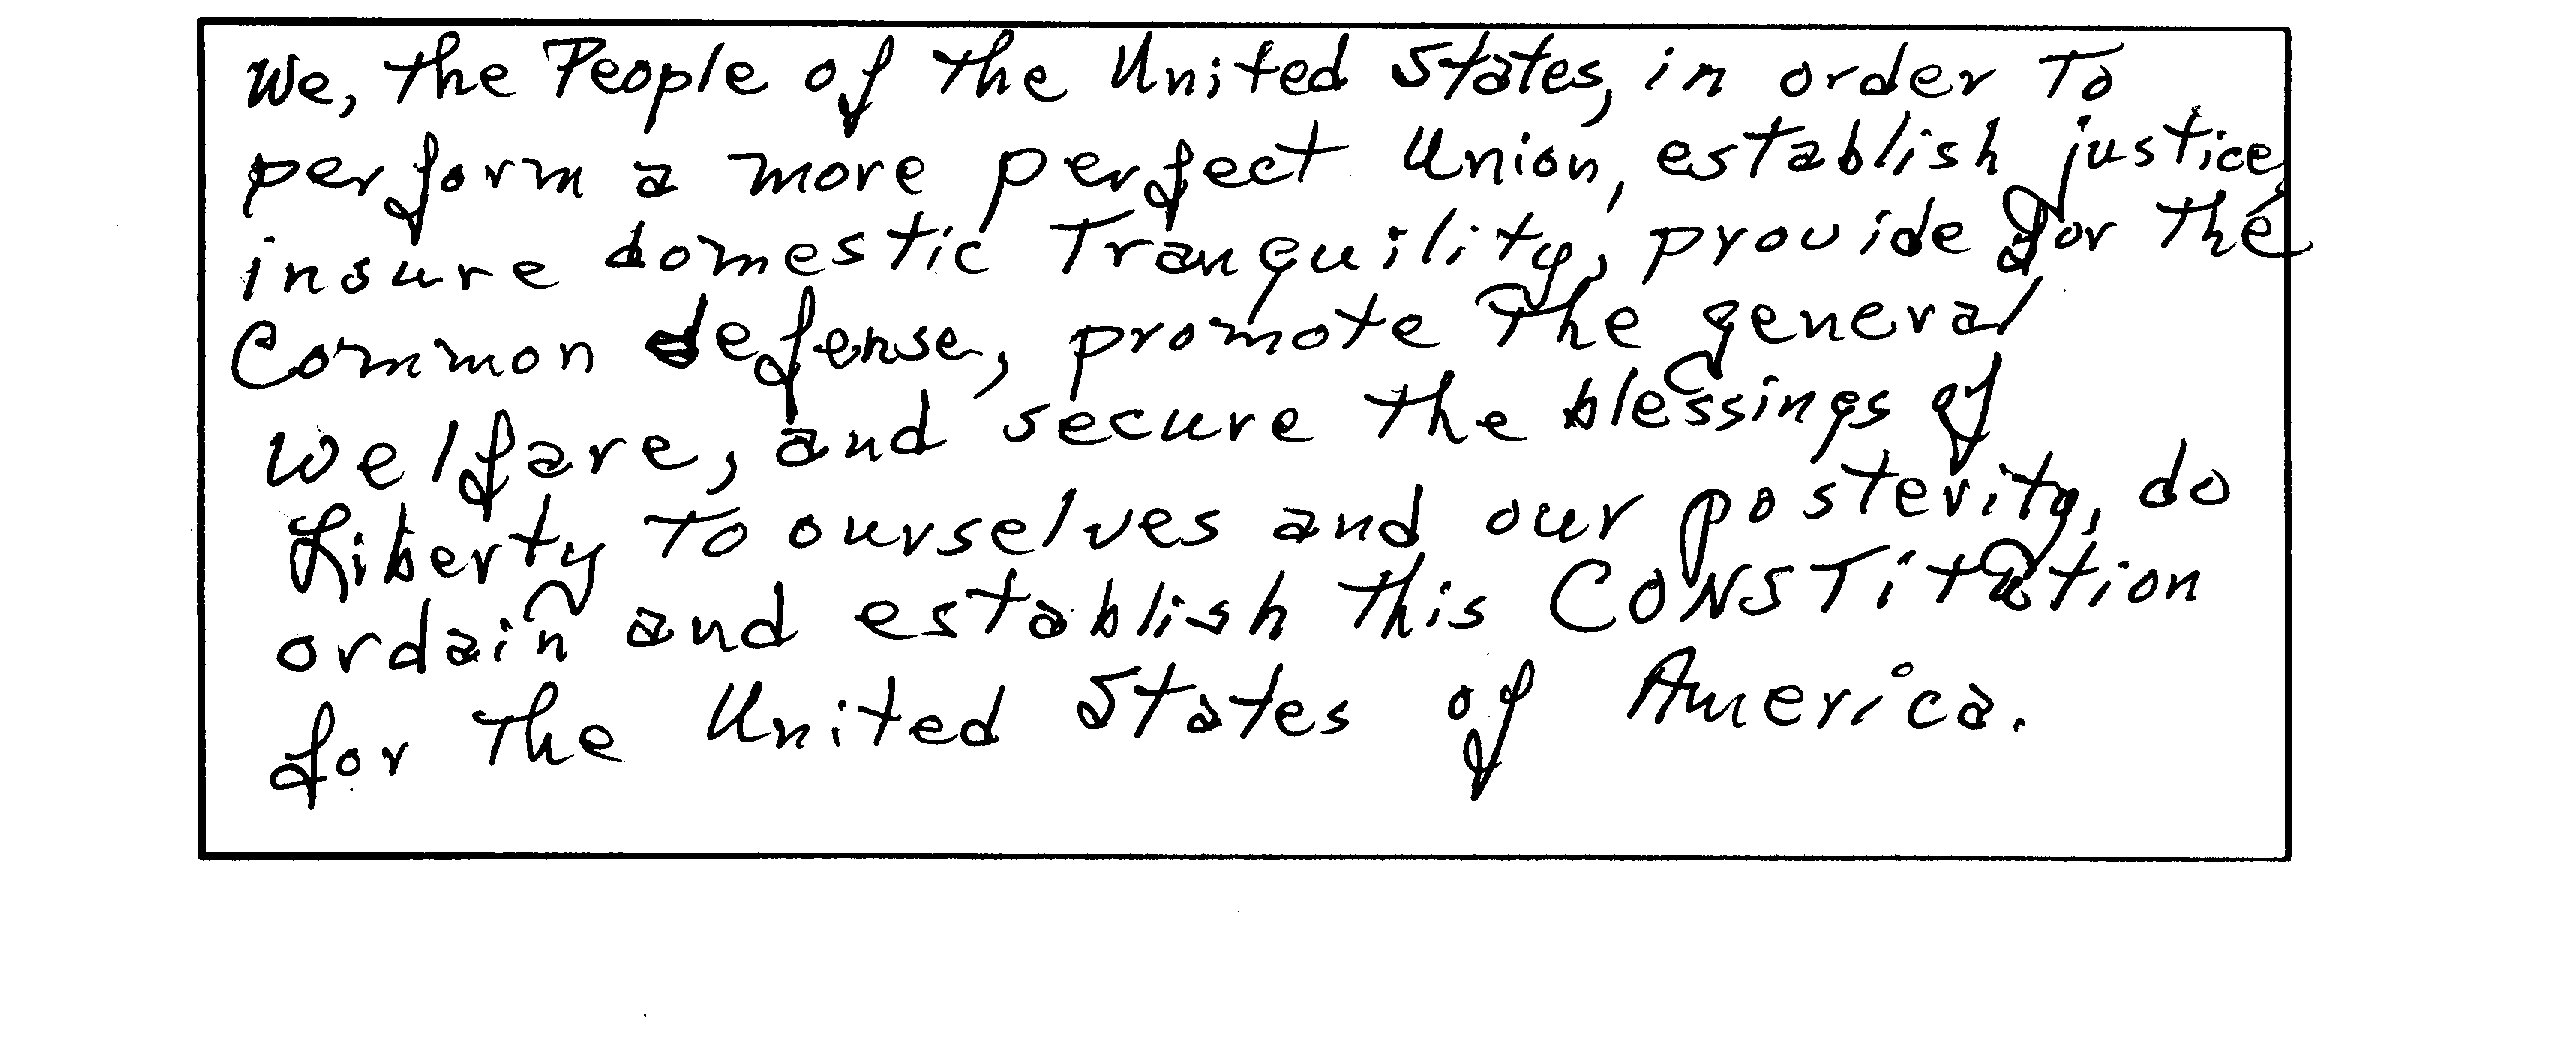 We, the People of the United States, in order To
perform a more perfect Union, establish justice,
insure domestic Tranquility, provide for the
Common defense, promote The general
welfare, and secure the blessings of
Liberty To ourselves and our posterity, do
ordain and establish this CONSTitution
for The United States of America.